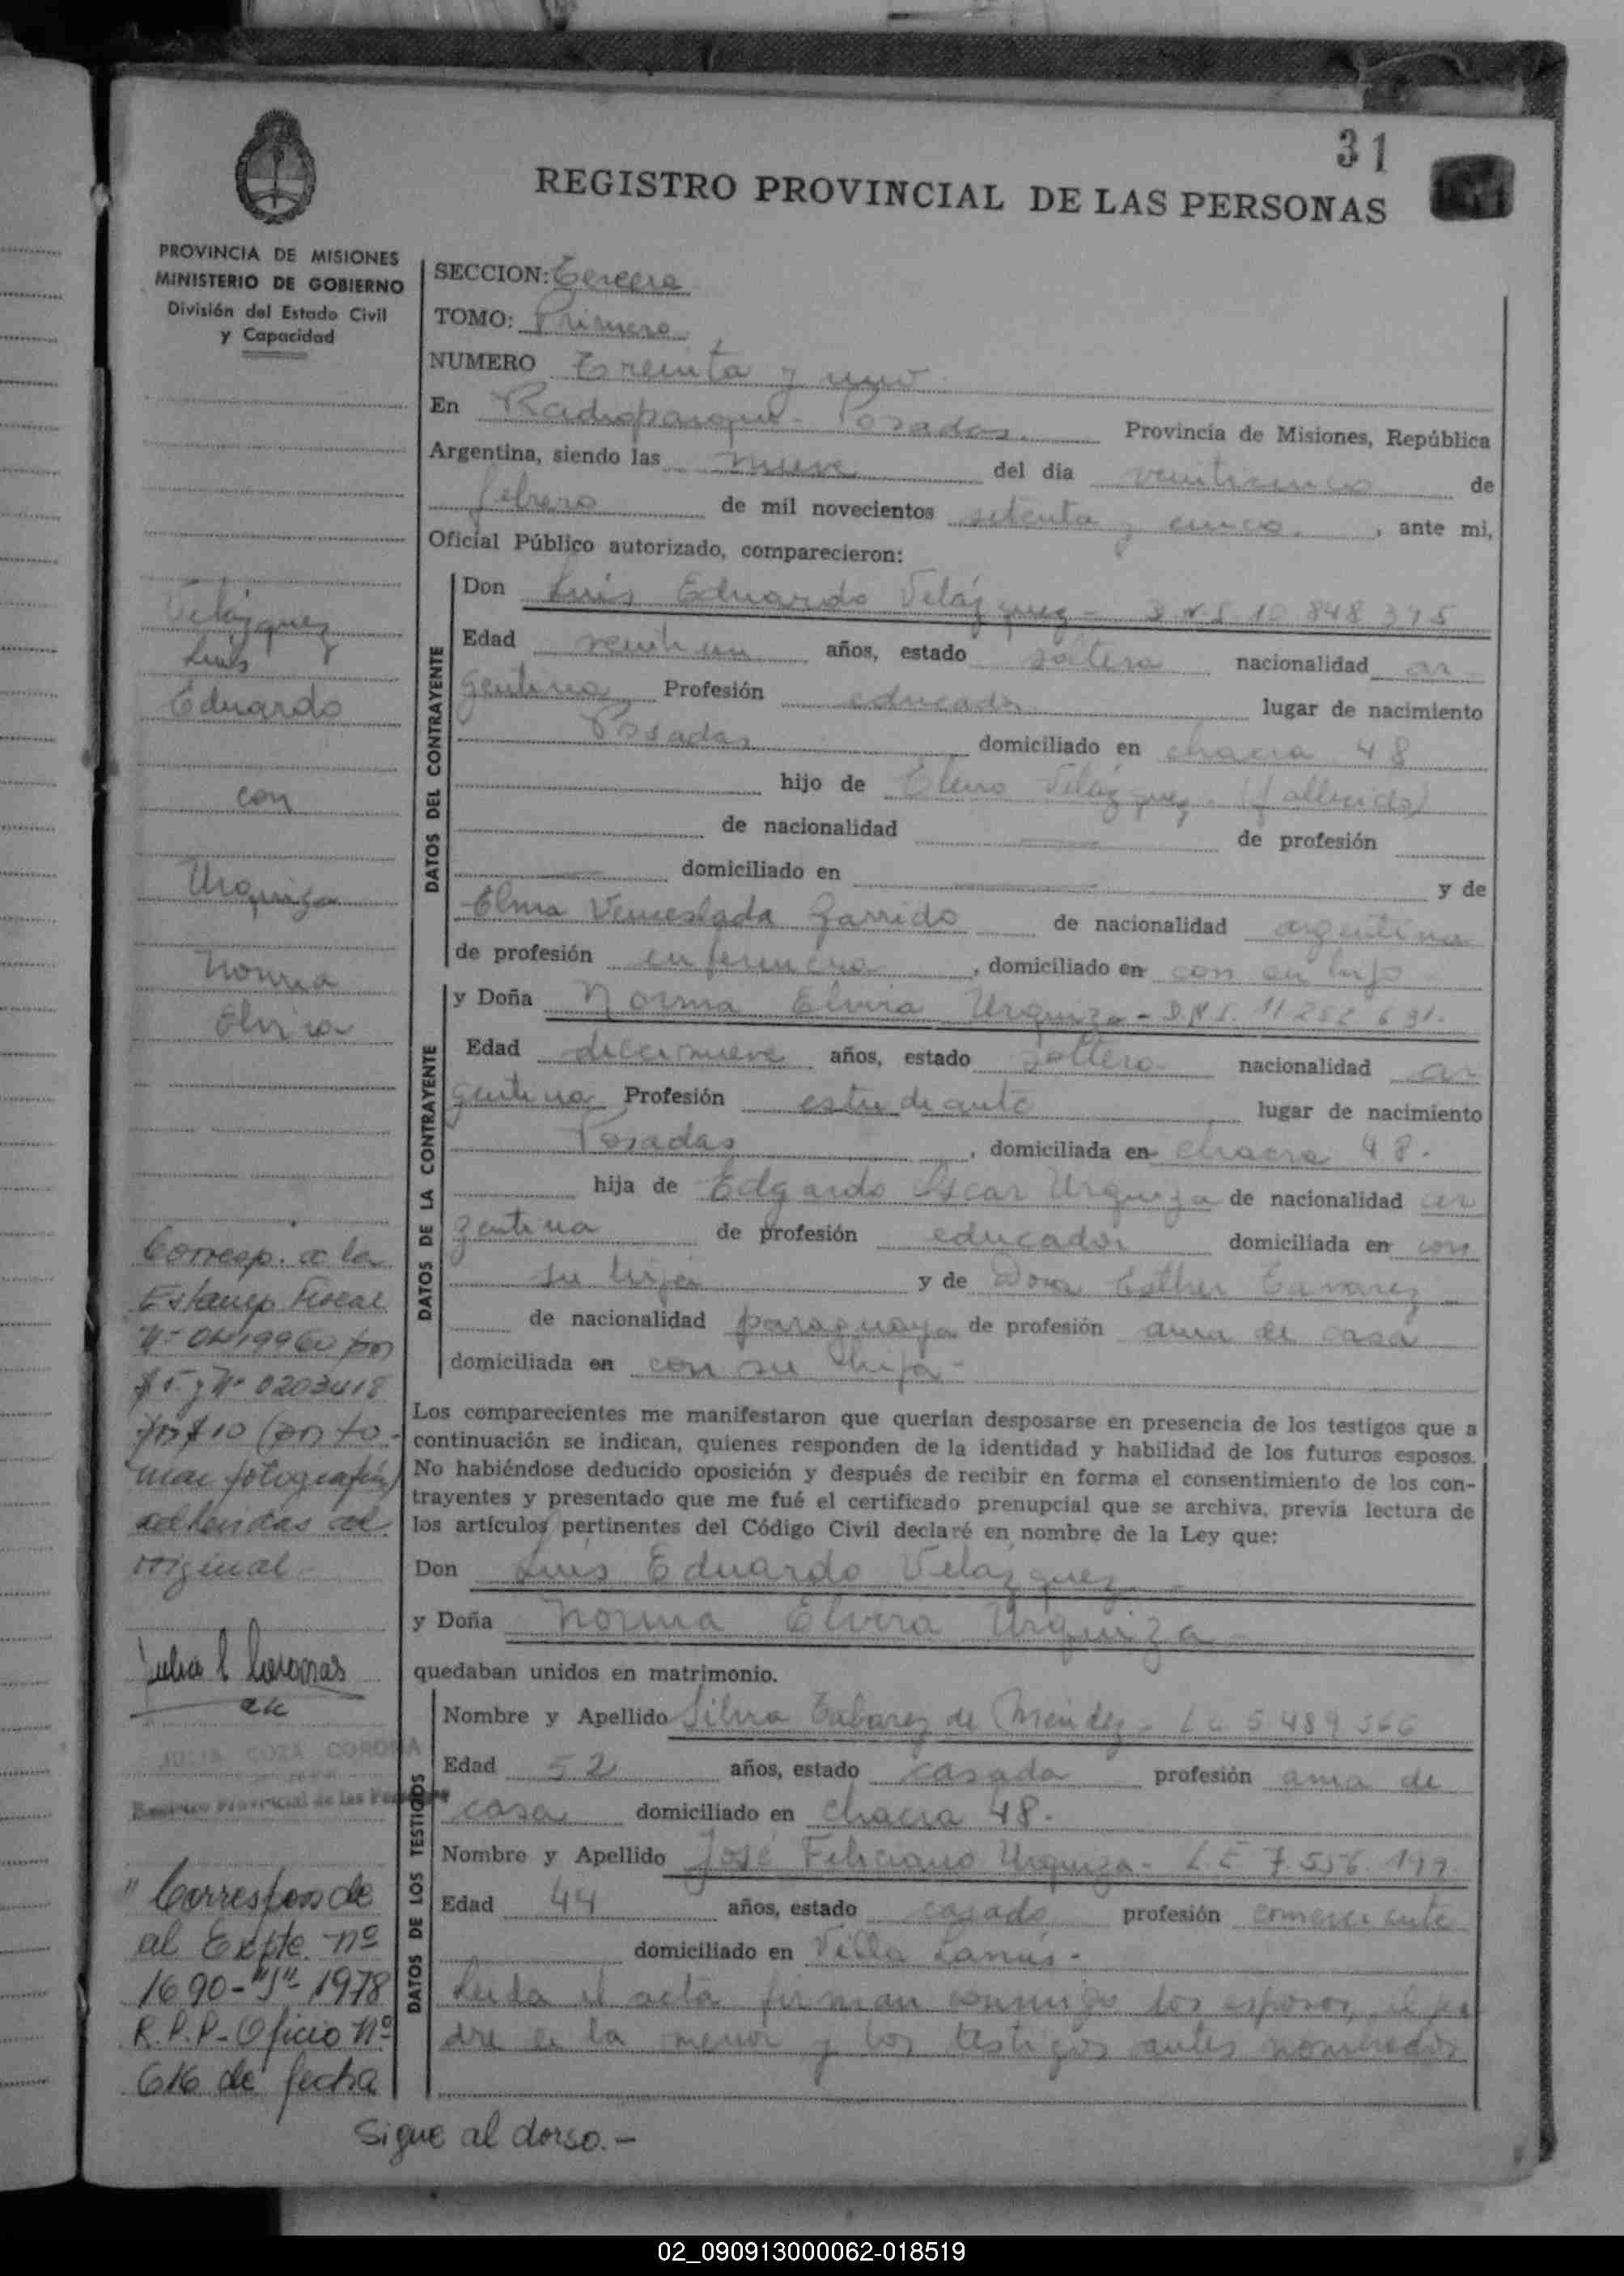 31
REGISTRO PROVINCIAL DE LAS PERSONAS
PROVINCIA DE MISIONES
MINISTERIO DE GOBIERNO
División del Estado Civil
y Capacidad
SECCION: Tercera
TOMO: Primero
NUMERO Treinta y uno
En Radioparque - Posadas. Provincia de Misiones, República
Argentina, siendo las nueve del día veinticinco de
febrero de mil novecientos setenta y cinco. , ante mi,
Oficial Público autorizado, comparecieron:
Velázquez
Luis
Eduardo
con
Urquiza
Norma
Elvira
DATOS DEL CONTRAYENTE
Don Luis Eduardo Velázquez - D.N.I. 10 848 395
Edad veintiun años, estado soltero nacionalidad ar
gentina Profesión educador lugar de nacimiento
Posadas domiciliado en chacra 48
hijo de Velázquez. (fallecido)
de nacionalidad — de profesión
— domiciliado en — y de
Elma Venceslada Garrido de nacionalidad argentina
de profesión enfermera , domiciliado en con su hijo
DATOS DE LA CONTRAYENTE
y Doña Norma Elvira Urquiza - D.N.I. 11 252 631.
Edad diecinueve años, estado soltera nacionalidad ar
gentina Profesión estudiante lugar de nacimiento
Posadas , domiciliada en chacra 48.
hija de Edgardo Oscar Urquiza de nacionalidad ar
gentina de profesión educador domiciliada en con
su hija y de Dora Esther Tavarez
de nacionalidad paraguaya de profesión ama de casa
domiciliada en con su hija -
Los comparecientes me manifestaron que querían desposarse en presencia de los testigos que a
continuación se indican, quienes responden de la identidad y habilidad de los futuros esposos.
No habiéndose deducido oposición y después de recibir en forma el consentimiento de los con-
trayentes y presentado que me fué el certificado prenupcial que se archiva, previa lectura de
los artículos pertinentes del Código Civil declaré en nombre de la Ley que:
Don Luis Eduardo Velázquez -
y Doña Norma Elvira Urquiza -
quedaban unidos en matrimonio.
DATOS DE LOS TESTIGOS
Nombre y Apellido Silvia Tabarez de Mendez - LC 5 489 566
Edad 52 años, estado casada profesión ama de
casa domiciliado en chacra 48.
Nombre y Apellido José Feliciano Urquiza - L.E 7.556.199
Edad 44 años, estado casado profesión comerciante
domiciliado en Villa Lanús -
Leida el acta firman conmigo los esposos, el pa
dre de la menor y los testigos antes nombrados
Corresp. a la
Estamp. Fiscal
Nº por
$ 5 y Nº 0203418
por $ 10 (por to-
mar fotografías)
adheridas al
original -
JULIA COZA CORONA
Registro Provincial de las Personas
"Corresponde
al Expte. nº
1690-"J"-1978
R.P.P- Oficio Nº
616 de fecha
Sigue al dorso.-
02_090913000062-018519